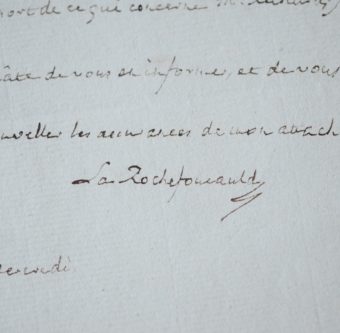 de ce qui concerne M.
hâte de vous en informer, et de vous
nouveller les assurances de mon attach
La Rochefoucauld
ercredi